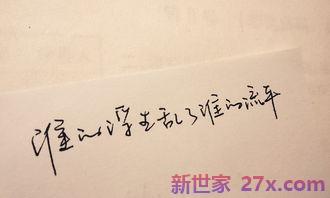 谁的浮生乱了谁的流年
新世家 27x.com